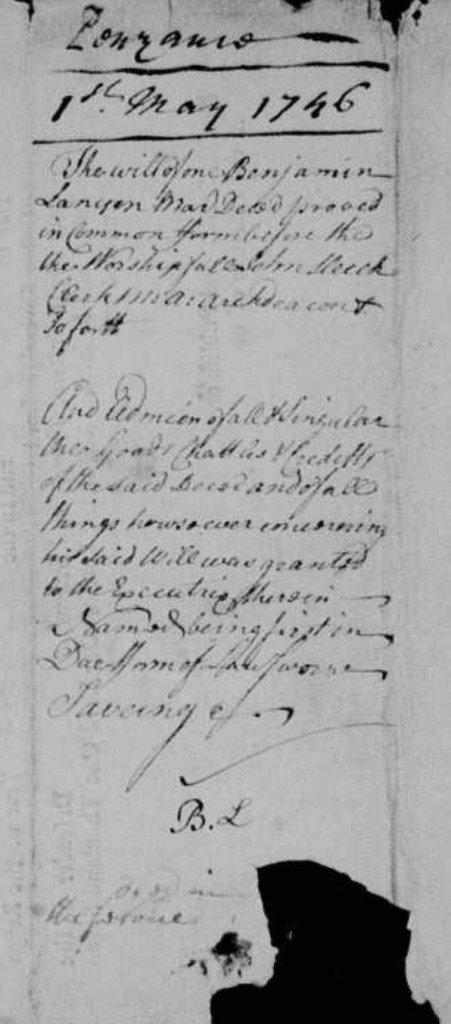 Penzance
1st. May 1746
The will of one Benjamin
Lanyon Mar Deced proved
in Common form before the
the Worshipfull John Sleech
Clerk M:A: archdeacon &
So forth
And Admcon of all & Singular
the Goods Chattles & Creditts
of the said Deced and of all
things howsoever concerning
his said Will was granted
to the Executrix therein
Named being first in
Due Form of Law Sworne
Saveing &
B. L